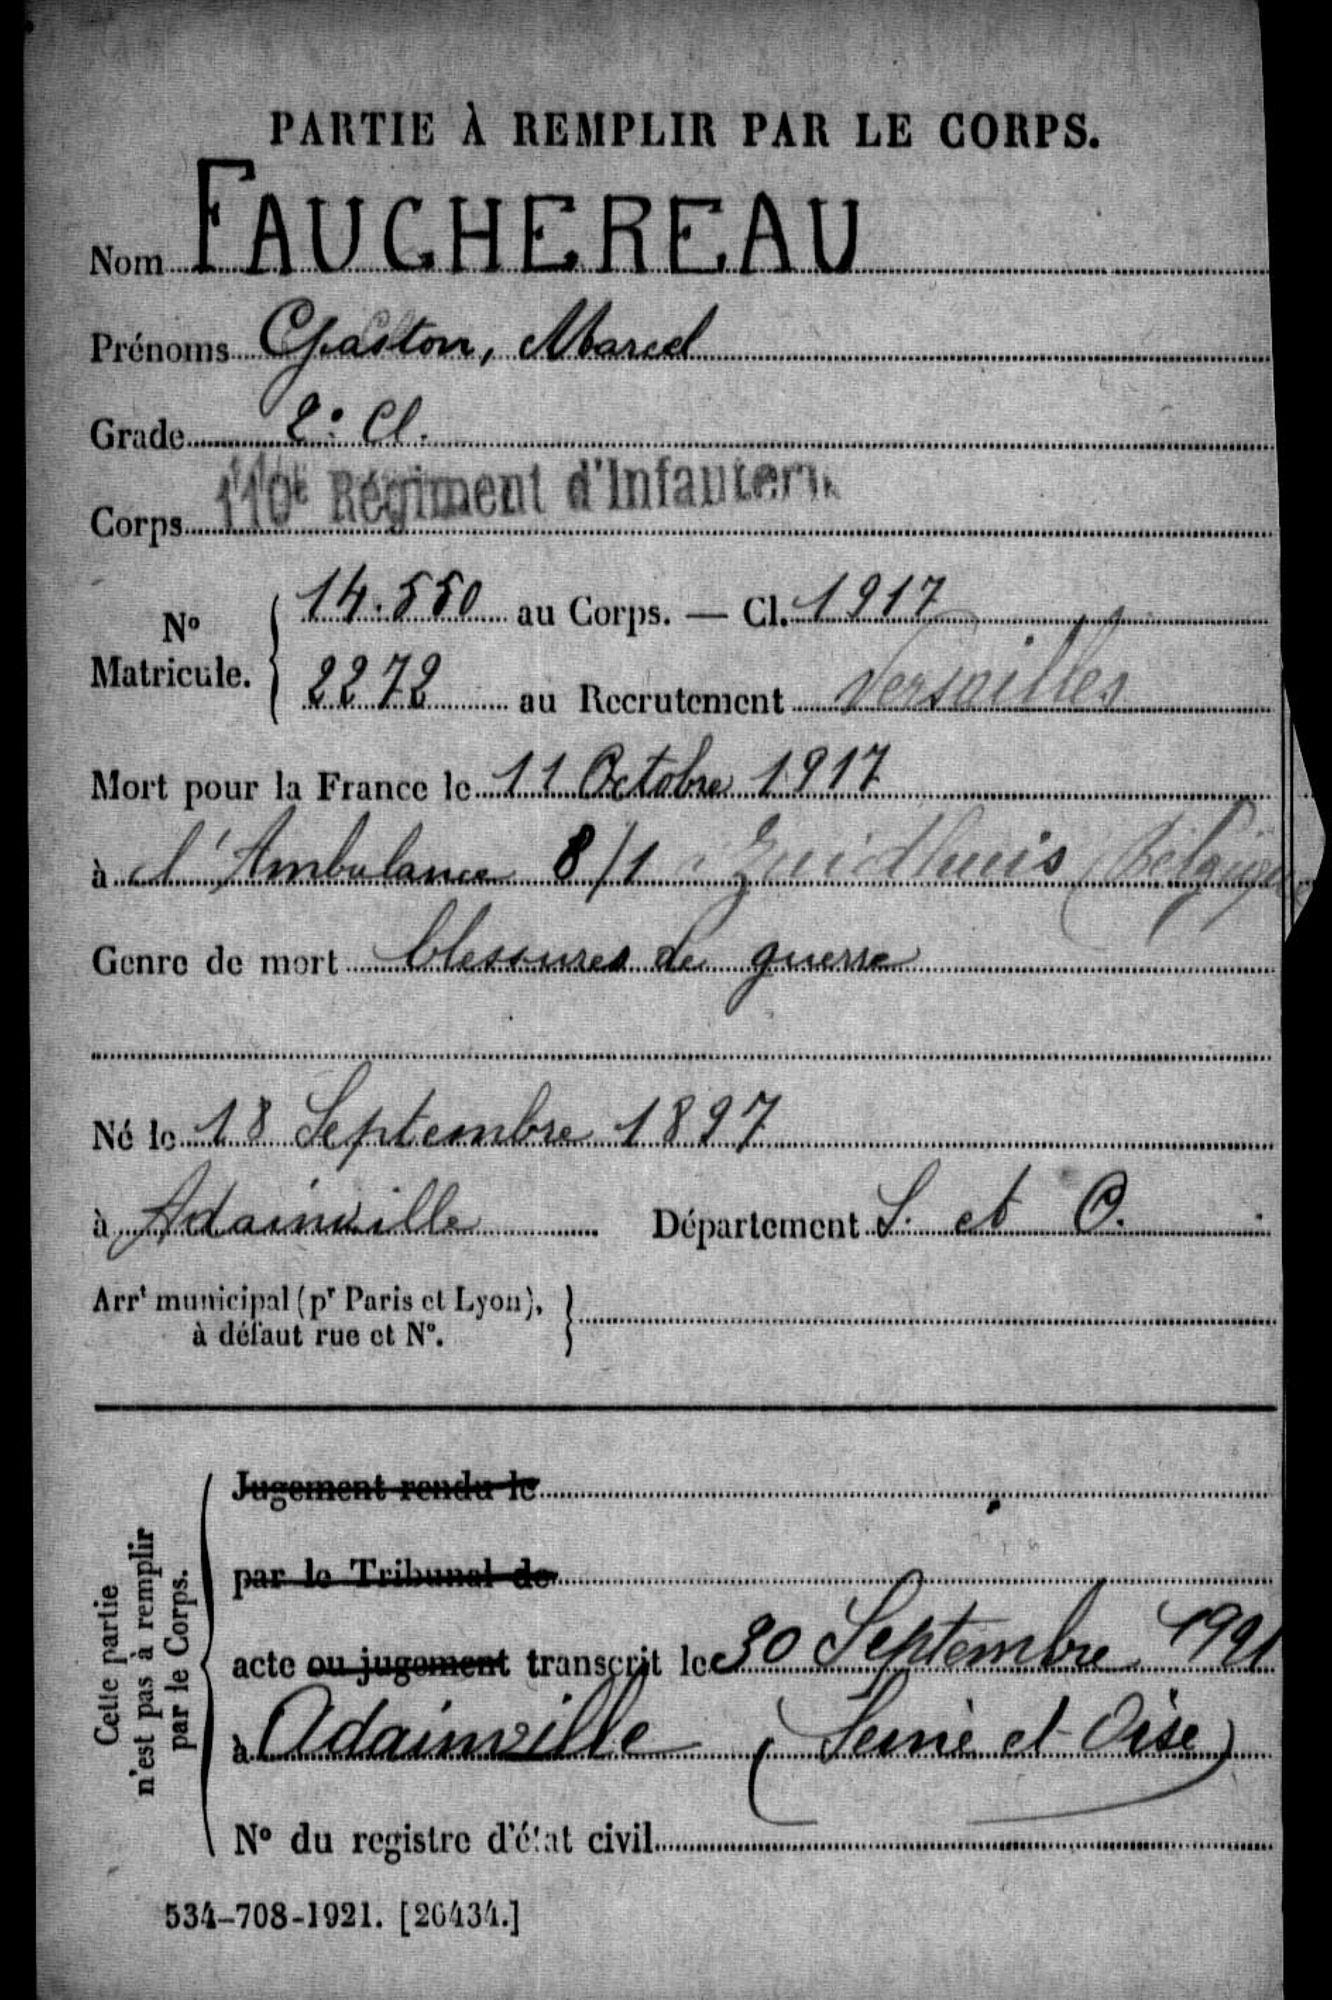 PARTIE À REMPLIR PAR LE CORPS.
Nom FAUCHEREAU
Prénoms Gaston, Marcel
Grade 2e Cl.
Corps 110e Régiment d'Infanterie
No Matricule. 14.550 au Corps. — Cl. 1917
2272 au Recrutement Versailles
Mort pour la France le 11 Octobre 1917
à l'Ambulance 8/1 Zuidhuis (Belgique
Genre de mort blessures de guerre
Né le 18 Septembre 1897
à Adainville Département S. et O.
Arrt municipal (pr Paris et Lyon),
à défaut rue et No.
Cette partie
n'est pas à remplir
par le Corps.
Jugement rendu le
par le Tribunal de
acte ou jugement transcrit le 30 Septembre 1921
à Adainville (Seine et Oise)
No du registre d'état civil
534-708-1921. [26434.]